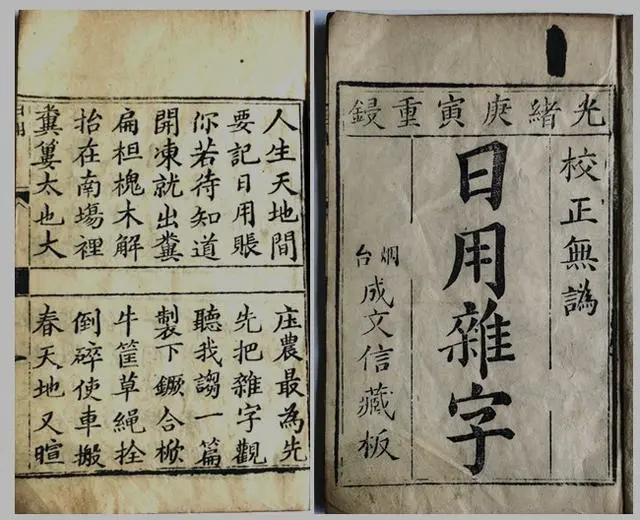 光緒庚寅重鋟
校正無譌
日用雜字
烟台
成文信藏板
人生天地間
庄農最為先
要記日用賬
先把雜字觀
你若待知道
聽我謅一篇
開凍就出糞
製下鐝合杴
扁担槐木解
牛筐草繩拴
抬在南塲裡
倒碎使車搬
糞簍太也大
春天地又暄